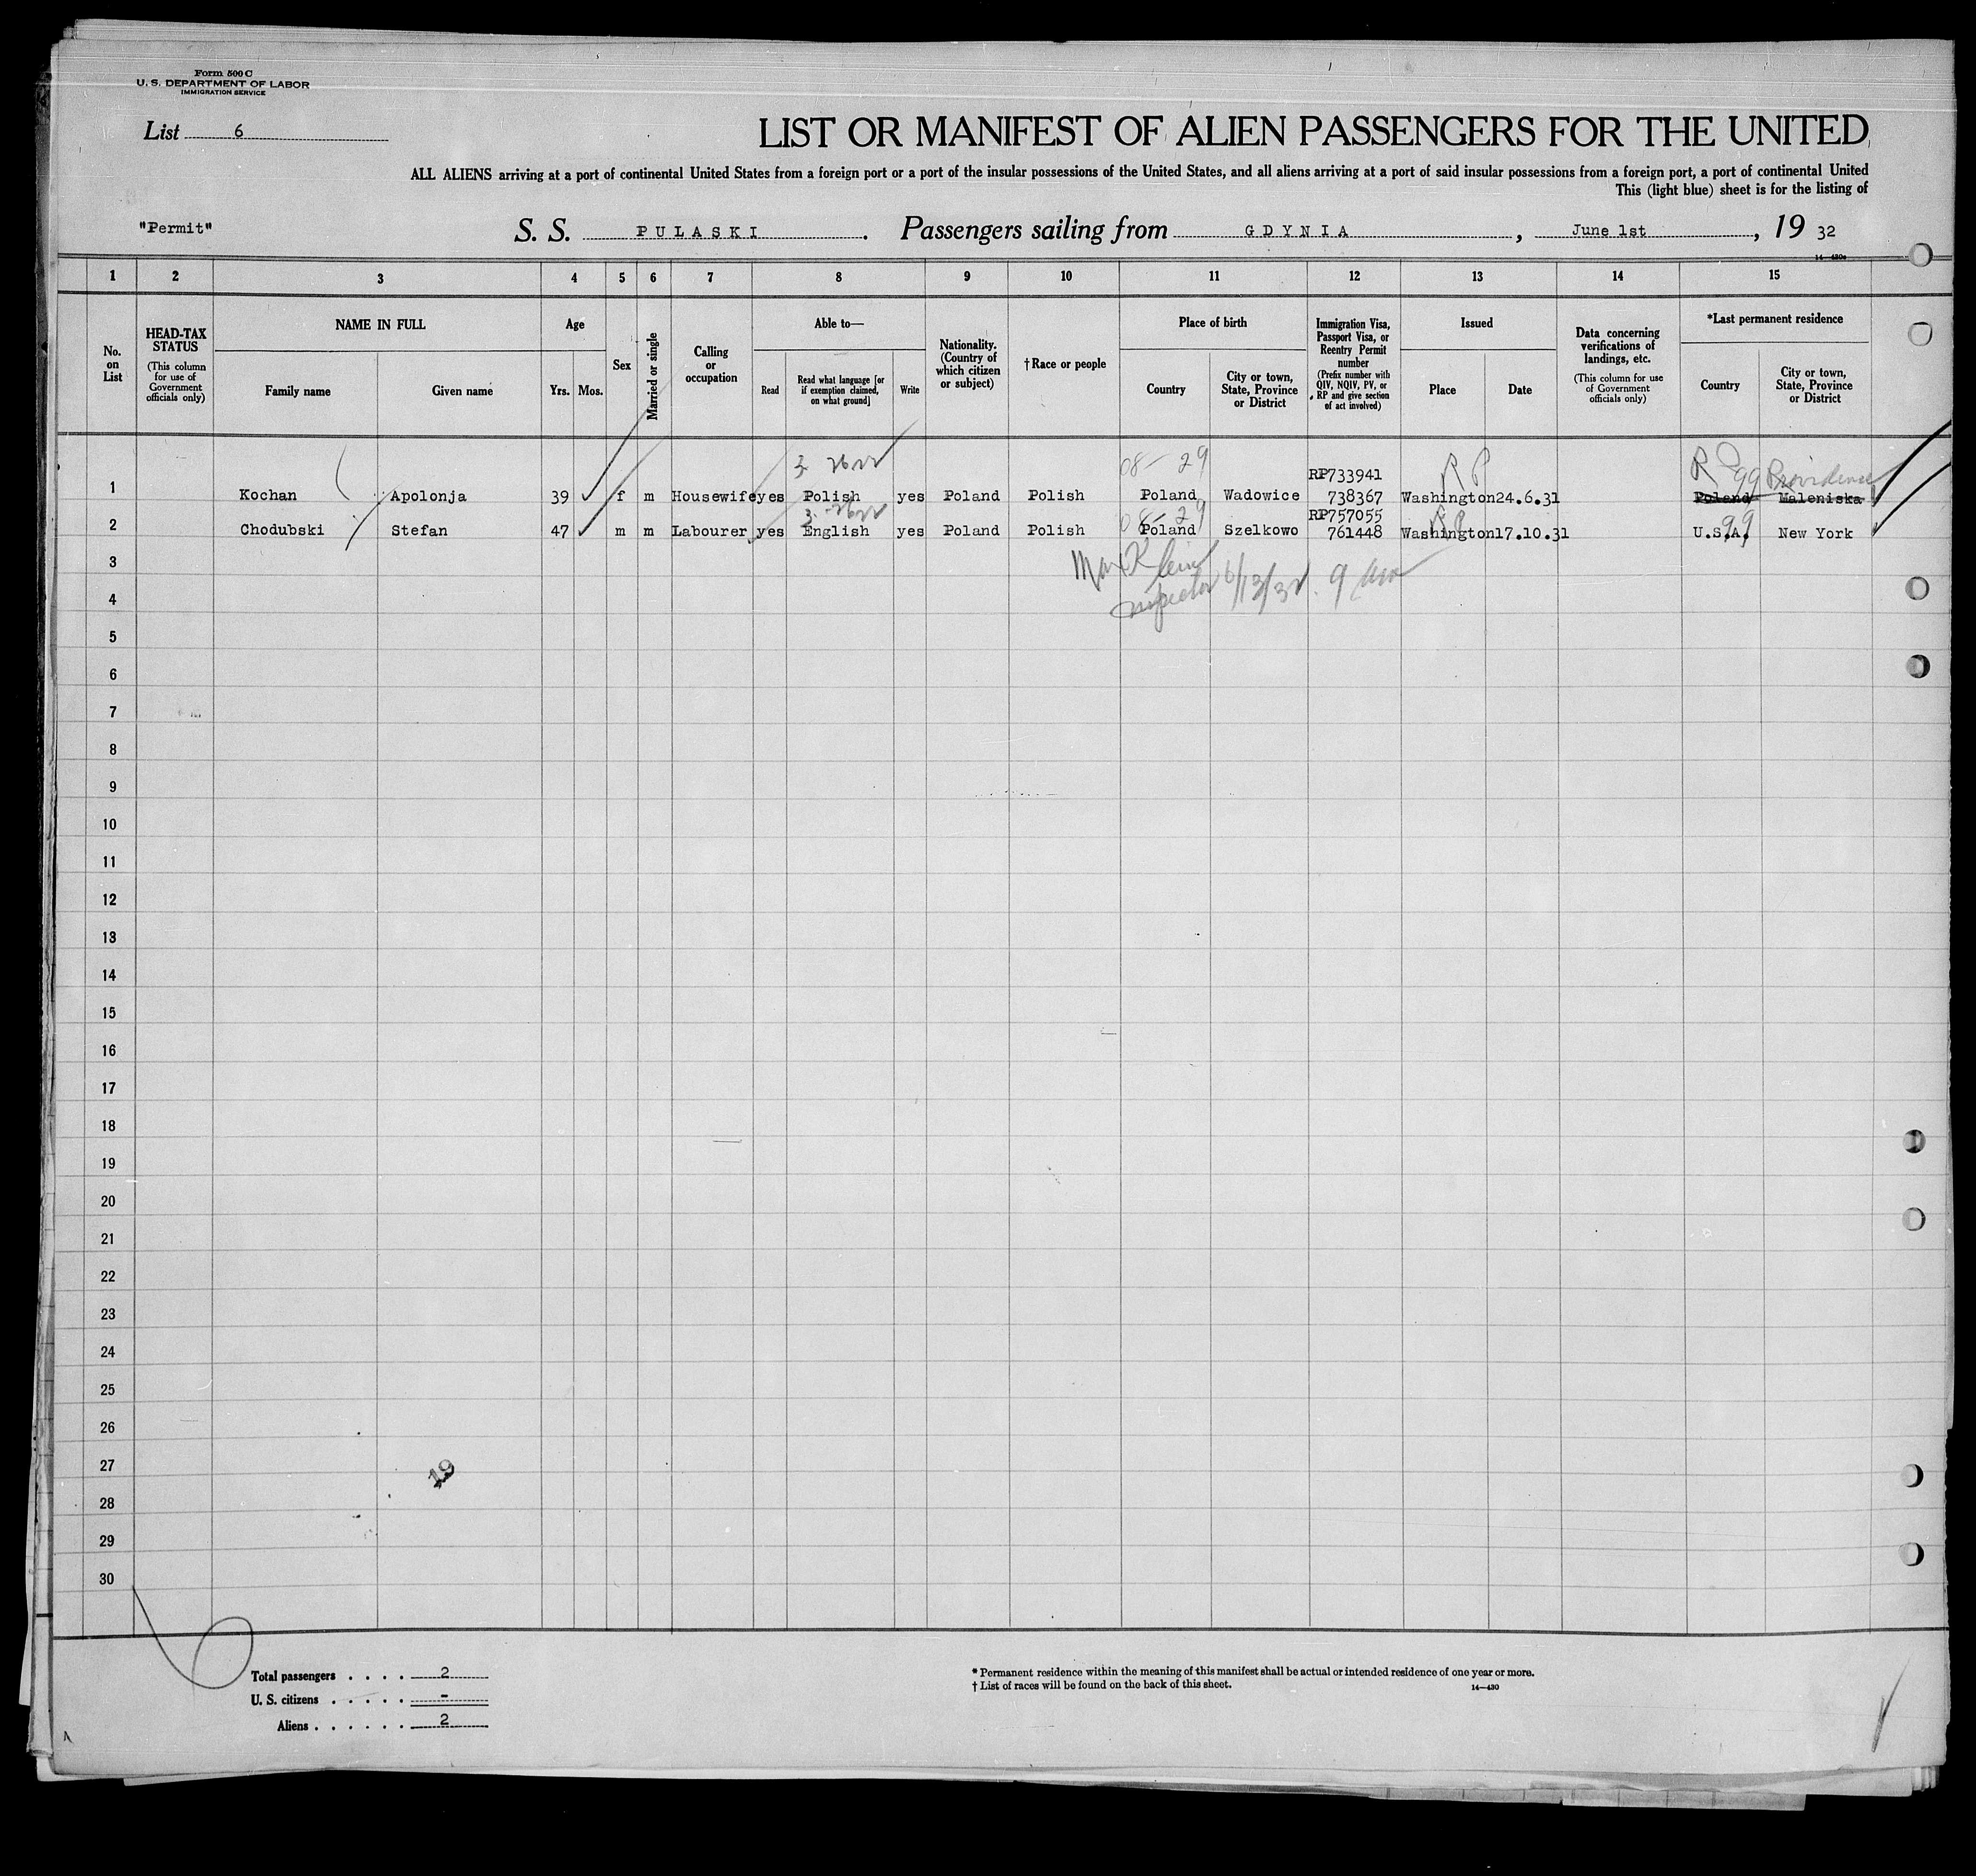 Form 500 C
U. S. DEPARTMENT OF LABOR
IMMIGRATION SERVICE
List 6
LIST OR MANIFEST OF ALIEN PASSENGERS FOR THE UNITED
ALL ALIENS arriving at a port of continental United States from a foreign port or a port of the insular possessions of the United States, and all aliens arriving at a port of said insular possessions from a foreign port, a port of continental United
This (light blue) sheet is for the listing of
"Permit" S. S. PULASKI. Passengers sailing from GDYNIA, June 1st, 19 32
14—430c
1 2 3 4 5 6 7 8 9 10 11 12 13 14 15
No. on List
HEAD-TAX STATUS (This column for use of Government officials only)
NAME IN FULL
Family name Given name
Age
Yrs. Mos.
Sex
Married or single
Calling or occupation
Able to—
Read Read what language [or if exemption claimed, on what ground] Write
Nationality. (Country of which citizen or subject)
†Race or people
Place of birth
Country City or town, State, Province or District
Immigration Visa, Passport Visa, or Reentry Permit number (Prefix number with QIV, NQIV, PV, or RP and give section of act involved)
Issued
Place Date
Data concerning verifications of landings, etc. (This column for use of Government officials only)
*Last permanent residence
Country City or town, State, Province or District
08-29 RP733941 RP RP 99 Providence
1 Kochan Apolonja 39 f m Housewife yes Polish yes Poland Polish Poland Wadowice 738367 Washington 24.6.31 Poland Maleniska
08-29 RP757055 RP 99
2 Chodubski Stefan 47 m m Labourer yes English yes Poland Polish Poland Szelkowo 761448 Washington 17.10.31 U.S.A. New York
3
Max Klein
4
Inspector 6/13/32. 9 am
5
6
7
8
9
10
11
12
13
14
15
16
17
18
19
20
21
22
23
24
25
26
27
19
28
29
30
Total passengers . . . . 2
U. S. citizens . . . . . -
Aliens . . . . . . 2
* Permanent residence within the meaning of this manifest shall be actual or intended residence of one year or more.
† List of races will be found on the back of this sheet. 14—430